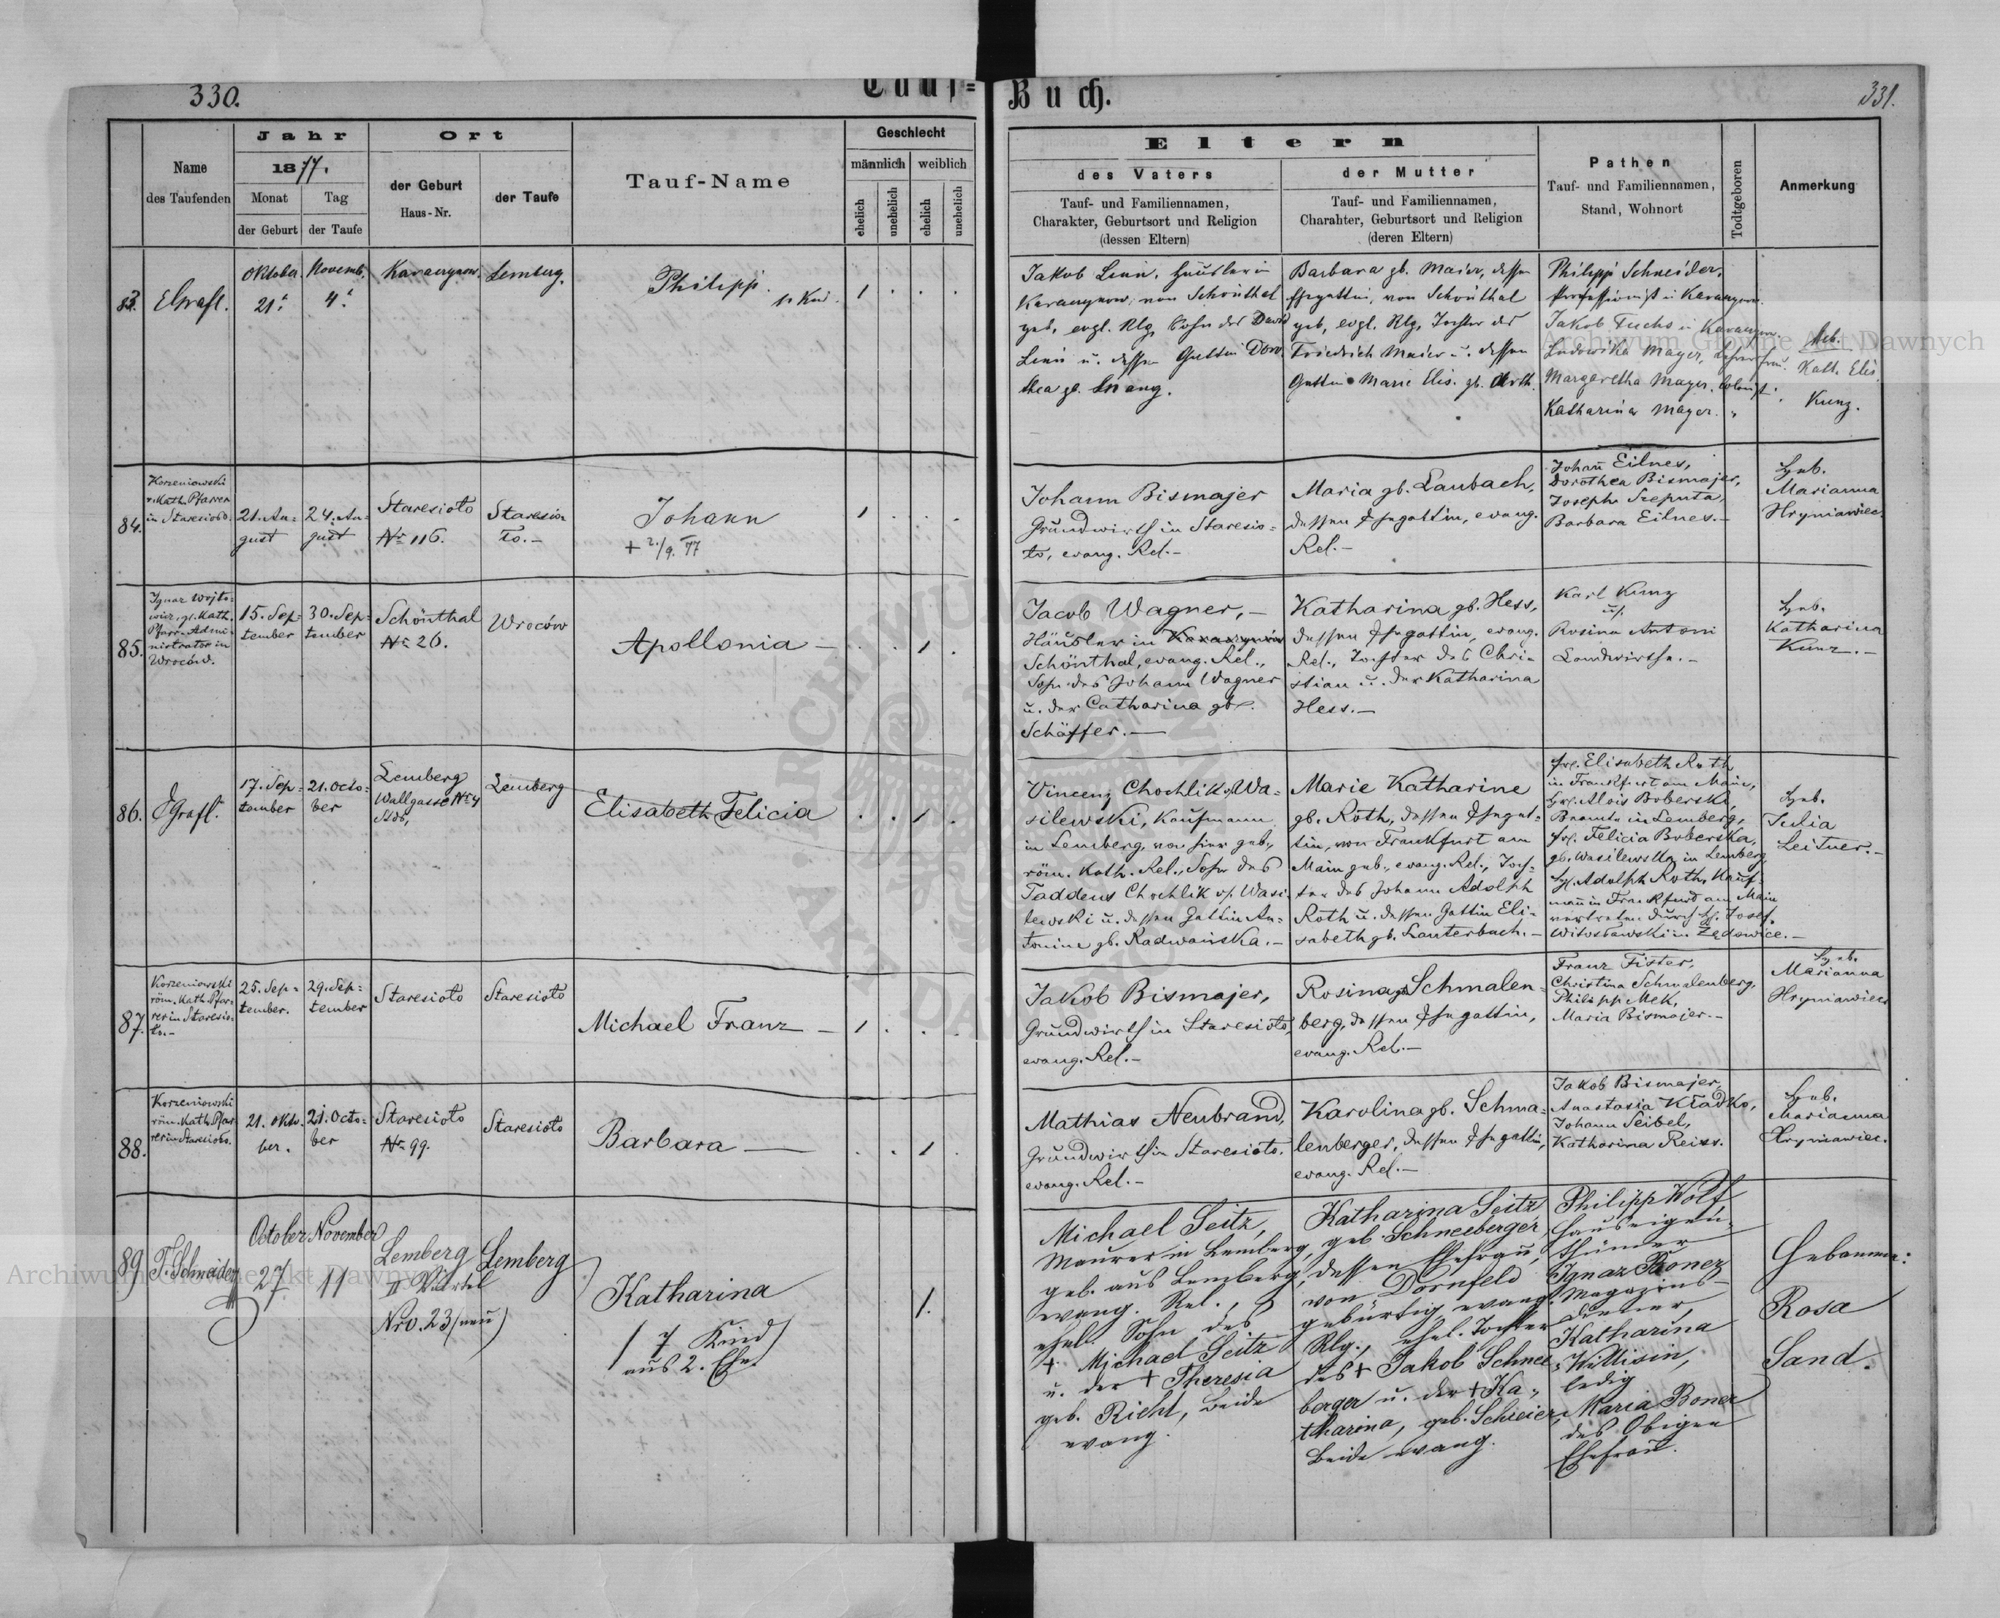 330.
Tauf=
Buch.
331.
Name
des Taufenden
Jahr
1877.
Monat
der Geburt
Tag
der Taufe
Ort
der Geburt
Haus-Nr.
der Taufe
Tauf-Name
Geschlecht
männlich
weiblich
ehelich
unehelich
ehelich
unehelich
Eltern
des Vaters
Tauf- und Familiennamen,
Charakter, Geburtsort und Religion
(dessen Eltern)
der Mutter
Tauf- und Familiennamen,
Charahter, Geburtsort und Religion
(deren Eltern)
Pathen
Tauf- und Familiennamen,
Stand, Wohnort
Todtgeboren
Anmerkung
83.
Oktober
21.
Novemb.
4.
Lemberg.
Philipp.
Jakob Linn, Häusler in
von Schönthal
geb. evgl. Rlg. Sohn des David
Linn u. dessen Gattin Doro
thea gb.
Barbara gb. Maier, dessen
Ehegattin, von Schönthal
geb, evgl. Rlg. Tochter des
Friedrich Maier u. dessen
Gattin Marie Elis. gb.
Philipp Schneider,
Jakob Fuchs in
Ludowika Mayer, Lehrersfrau.
Margaretha Mayer,
Katharina Mayer.
Heb.
Kath. Elis.
Kunz.
84.
Korzeniowski
r. Kath. Pfarrer
in Staresioło.
21. Au-
gust
24. Au-
gust
Staresioło
Nr 116.
Staresio
ło.-
Johann
+ 2./9. 77
Johann Bismajer
Grundwirth in Staresio-
ło, evang. Rel.-
Maria gb. Laubach,
dessen Ehegattin, evang.
Rel.-
Johann Eilnes,
Dorothea Bismajer,
Joseph Szeputa,
Barbara Eilnes.-
Heb.
Marianna
Hryniawiec.
85.
Ignaz Wojto-
wicz, gr. Kath.
Pfarr-Admi-
nistrator in
Wroców.
15. Sep-
tember
30. Sep-
tember
Schönthal
Nr 26.
Wroców
Apollonia -
Jacob Wagner, -
Häusler in
Schönthal, evang. Rel.,
Sohn des Johann Wagner
u. der Catharina gb.
Schäffer. -
Katharina gb. Hess,
dessen Ehegattin, evang.
Rel., Tochter des Chri-
stian u. der Katharina
Hess. -
Karl Kunz
u.
Rosina Antoni
Landwirthe. -
Heb.
Katharina
Kunz. -
86.
Grafl.
17. Sep-
tember
21. Octo-
ber
Lemberg
Wallgasse Nr 4
Lemberg
Elisabeth Felicia
Vincenz Chochlik v. Wa-
silewski, Kaufmann
in Lemberg, von hier geb.,
röm. Kath. Rel., Sohn des
Taddeus Chochlik v. Wasi-
lewski u. dessen Gattin An-
tonine gb. Radwańska. -
Marie Katharine
gb. Roth, dessen Ehegat-
tin, von Frankfurt am
Main geb., evang. Rel., Toch-
ter des Johann Adolph
Roth u. dessen Gattin Eli-
sabeth gb. Lauterbach. -
Frl. Elisabeth Roth
in Frankfurt am Main,
Hr. Alois Boberski,
Beamte in Lemberg,
Fr. Felicia Boberska,
gb. Wasilewska in Lemberg
Hr. Adolph Roth, Kauf-
mann in Frankfurt am Main
vertreten durch H. Josef
Witosławski in
Heb.
Julia
Leitner. -
87.
Korzeniowski
röm. Kath. Pfar-
rer in Staresio-
ło. -
25. Sep-
tember.
29. Sep-
tember
Staresioło
Staresioło
Michael Franz -
Jakob Bismajer,
Grundwirth in Staresioło,
evang. Rel. -
Rosina gb. Schmalen-
berg, dessen Ehegattin,
evang. Rel. -
Franz Fister,
Christina Schmalenberg,
Philipp Mek,
Maria Bismajer. -
Heb.
Marianna
Hryniawiec
88.
Korzeniowski
röm. Kath. Pfar
rer in Staresioło.
21. Okto-
ber.
21. Octo-
ber
Staresioło
Nr 99.
Staresioło
Barbara -
Mathias Neubrand,
Grundwirth in Staresioło,
evang. Rel. -
Karolina gb. Schma-
lenberger, dessen Ehegattin,
evang. Rel. -
Jakob Bismajer,
Anastasia Kładko,
Johann Seibel,
Katharina Reiss.
Heb.
Marianna
Hryniawiec.
89
F. Schneider
October
27
November
11
Lemberg
II Viertel
Nro. 23 (neu)
Lemberg
Katharina
(7 Kind
aus 2. Ehe)
Michael Seitz,
Maurer in Lemberg,
geb. aus Lemberg,
evang. Rel.,
ehel. Sohn des
+ Michael Seitz
u. der + Theresia
geb. Richt, beide
evang.
Katharina Seitz
geb. Schneeberger,
dessen Ehefrau,
von Dornfeld
gebürtig evang.
Rlg., ehel. Tochter
des + Jakob Schnee
berger u. der + Ka-
tharina, geb. Schreier,
beide evang.
Philipp Wolf
Hauseigen-
thümer
Ignaz Boner
Magazins-
diener,
Katharina
Willisin,
ledig
Maria Boner
des Obigen
Ehefrau.
Hebamme:
Rosa
Sand.
Archiwum Główne Akt Dawnych
Archiwum Główne Akt Dawnych